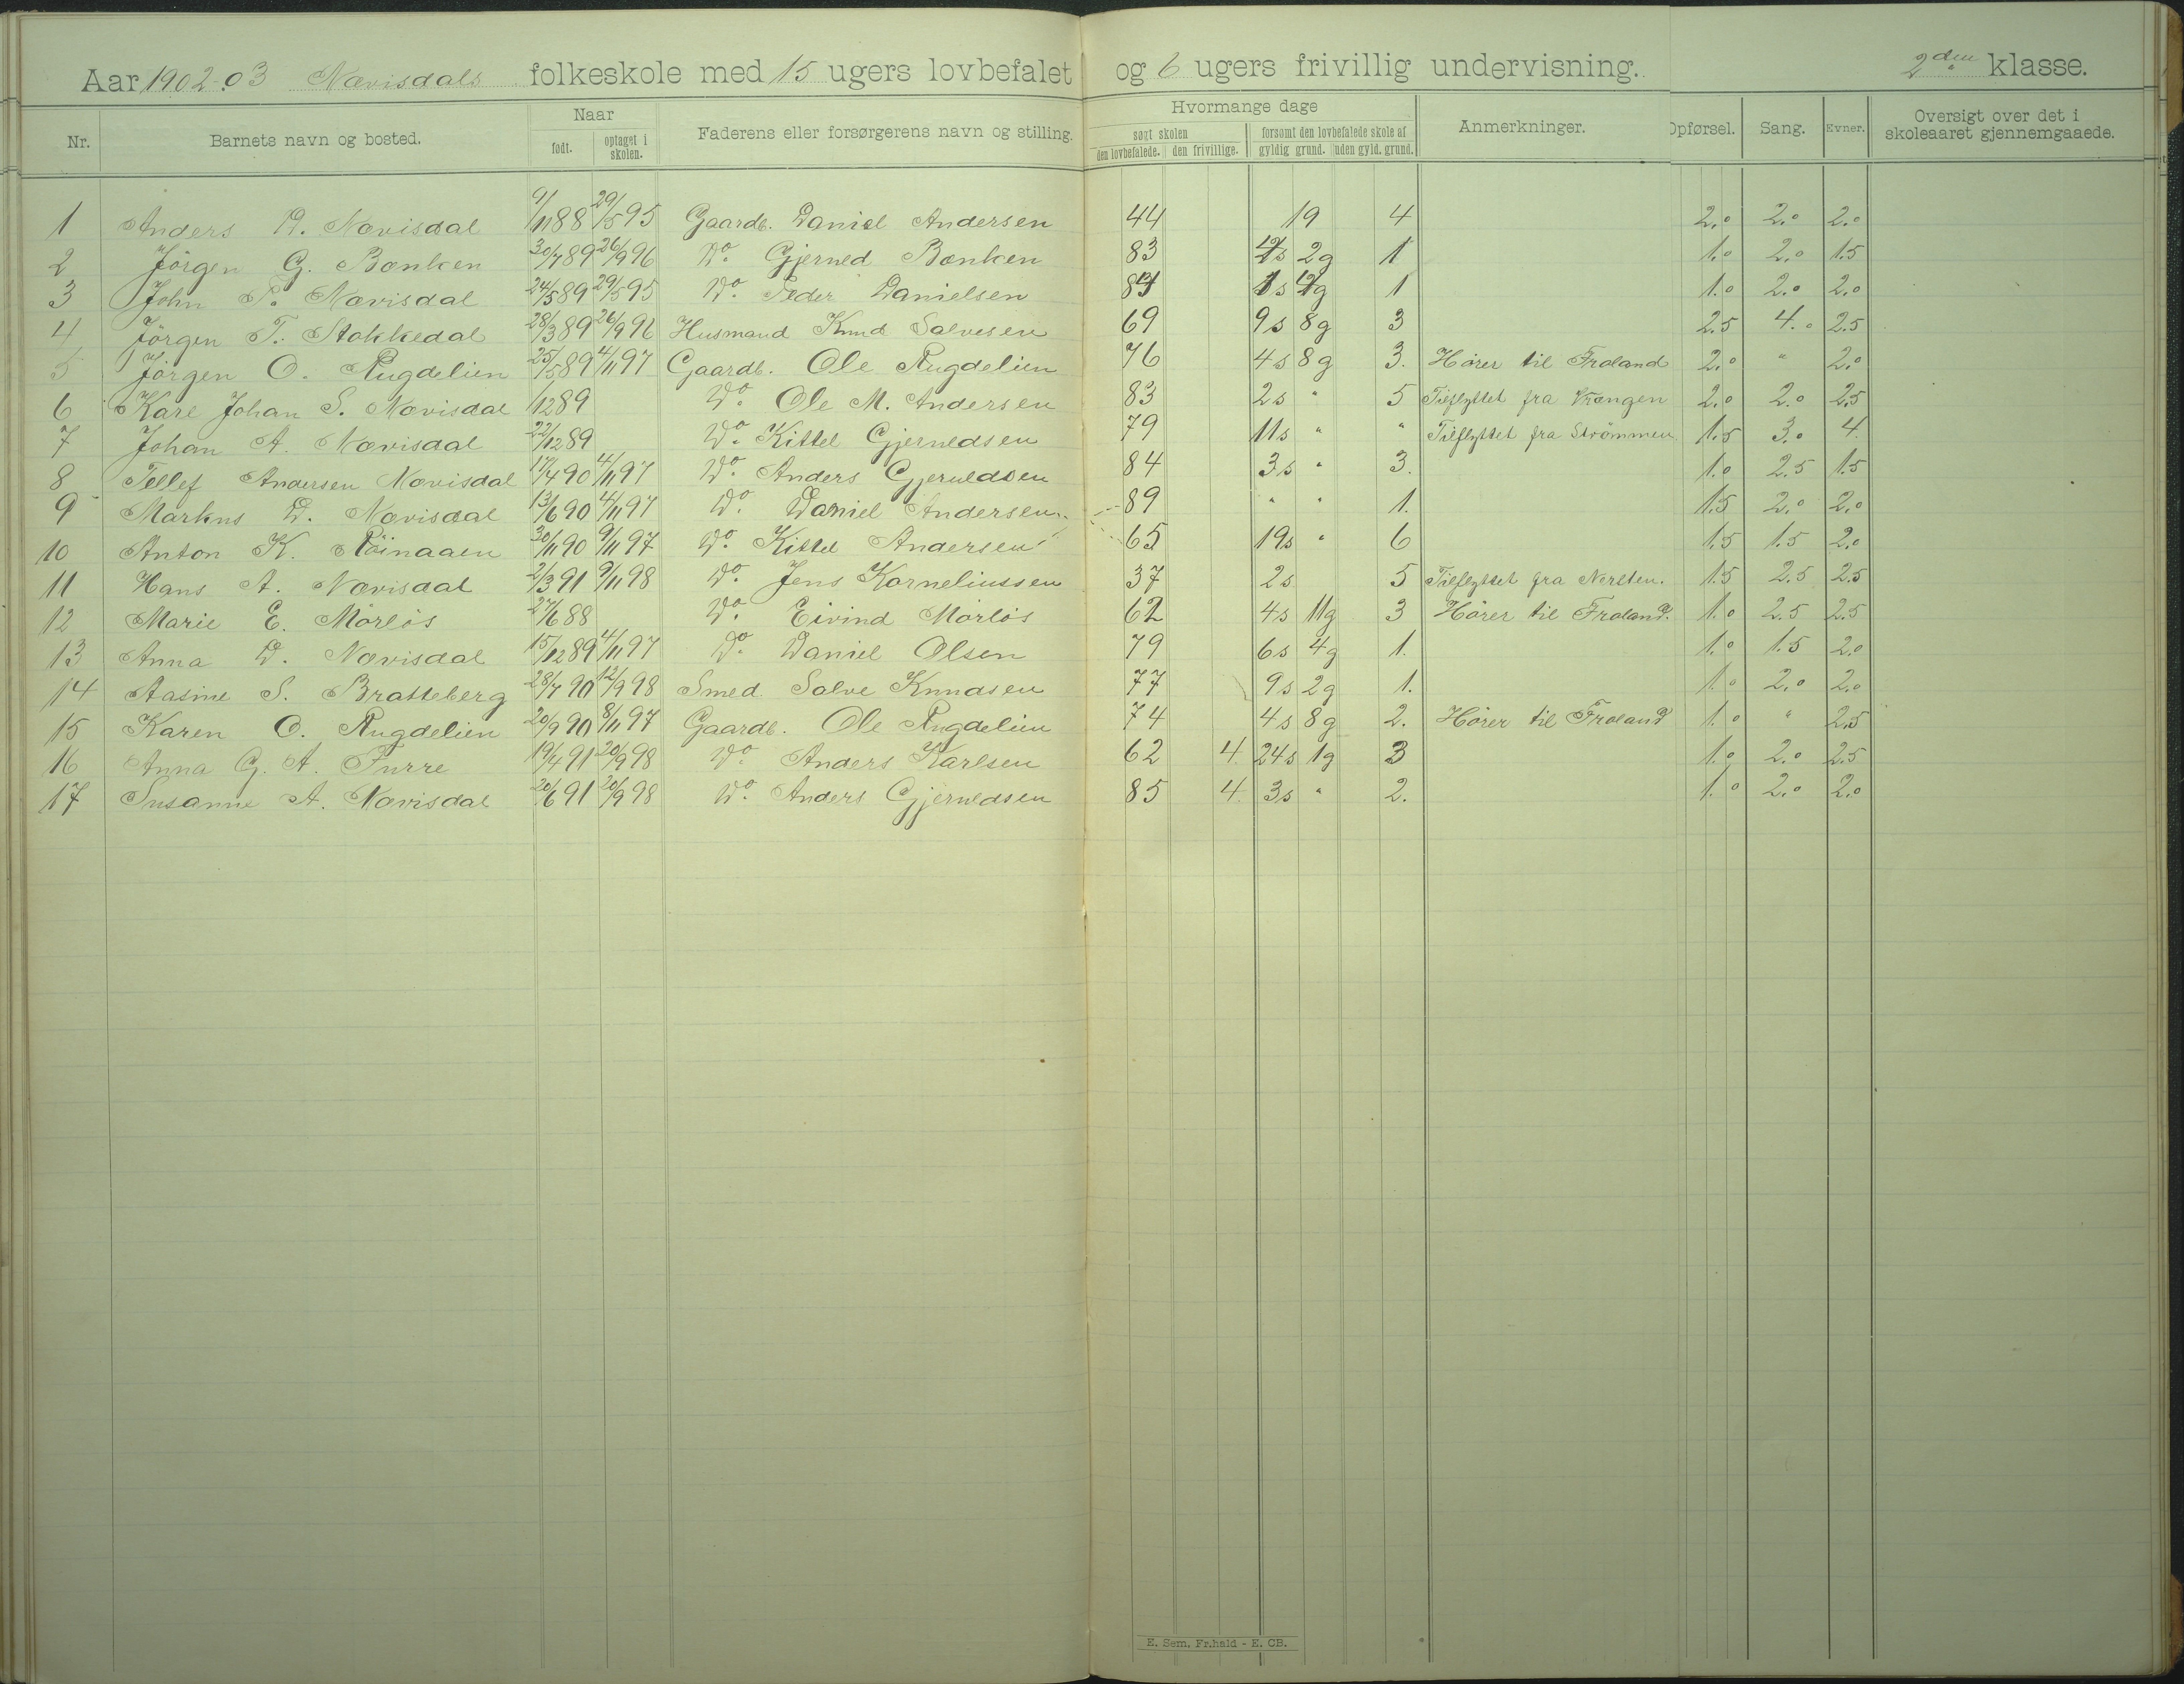 Aar 1902-03 Nævisdals folkeskole med 15 ugers lovbefalet og 6 ugers frivillig undervisning. 2den klasse.
Nr. Barnets navn og bosted. Naar født. optaget i skolen. Faderens eller forsørgerens navn og stilling. Hvormange dage søgt skolen den lovbefalede. den frivillige. forsømt den lovbefalede skole af gyldig grund. uden gyld. grund. Anmerkninger. Opførsel. Sang. Evner. Oversigt over det i skoleaaret gjennemgaaede.
1 Anders D. Nævisdal 9/11 88 29/5 95 Gaardb. Daniel Andersen 44 19 4 2.0 2.0 2.0
2 Jörgen G. Bænken 30/7 89 26/9 96 Do. Gjerued Bænken 83 2g 1 1.0 2.0 1.5
3 John P. Nævisdal 24/5 89 29/5 95 Do. Peder Danielsen 1 1.0 2.0 2.0
4 Jörgen T. Stokkedal 28/3 89 26/9 96 Husmand Knud Salvesen 69 9s 8g 3 2.5 4.0 2.5
5 Jörgen O. Rugdelien 25/5 89 4/11 97 Gaardb. Ole Rugdelien 76 4s 8g 3. Hörer til Froland 2.0 " 2.0
6 Karl Johan S. Nævisdal 1289 Do. Ole M. Andersen 83 2s " 5 Tilflyttet fra Vrængen 2.0 2.0 2.5
7 Johan A. Nævisdal 22/12 89 Do. Kittel Gjeruldsen 79 11s " " Tilflyttet fra Strömmen 1.5 3.0 4.
8 Tellef Andersen Nævisdal 17/4 90 4/11 97 Do Anders Gjeruldsen 84 3s " 3. 1.0 2.5 1.5
9 Markus D. Nævisdal 13/6 90 4/11 97 Do. Daniel Andersen 89 " " 1. 1.5 2.0 2.0
10 Anton K. Röinaaen 30/11 90 9/11 97 Do. Kittel Andersen 65 19s " 6 1.5 1.5 2.0
11 Hans A. Nævisdal 2/3 91 9/11 98 Do. Jens Korneliussen 37 2s 5 Tilflyttet fra 1.5 2.5 2.5
12 Marie E. Mörlös 27/6 88 Do. Eivind Mörlös 62 4s 11g 3 Hörer til Froland. 1.0 2.5 2.5
13 Anna D. Nævisdal 15/12 89 4/11 97 Do. Daniel Olsen 79 6s 4g 1. 1.0 1.5 2.0
14 Aasine S. Bratteberg 28/7 90 12/9 98 Smed Salve Knudsen 77 9s 2g 1. 1.0 2.0 2.0
15 Karen O. Rugdelien 20/9 90 8/11 97 Gaardb. Ole Rugdelien 74 4s 8g 2. Hörer til Froland 1.0 " 2.5
16 Anna G. A. Furre 19/4 91 20/9 98 Do Anders Karlsen 62 4. 24s 1g 3 1.0 2.0 2.5
17 Susanne A. Nævisdal 20/6 91 20/9 98 Do. Anders Gjeruldsen 85 4. 3s " 2. 1.0 2.0 2.0
E. Sem, Fr.hald - E. CB.